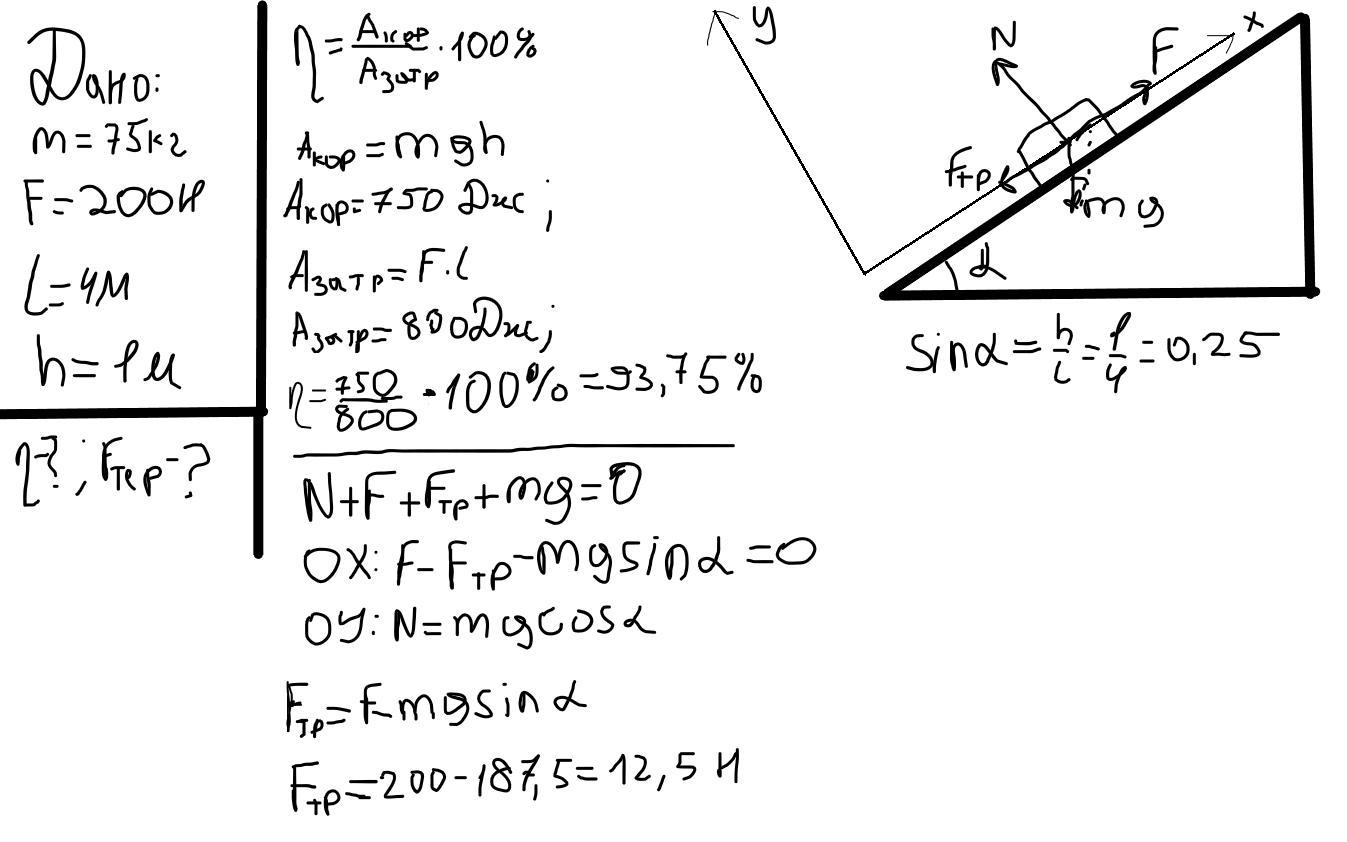 Дано:
m=75кг
F=200Н
L=4м
h=1м
η-?; Fтер-?
η=Aкор/Aзатр·100%
Aкор=mgh
Aкор=750 Дж;
Aзатр=F·l
Aзатр=800Дж;
η=750/800·100%=93,75%
N+F+Fтр+mg=0
OX: F-Fтр-mgsinα=0
OY: N=mgcosα
Fтр=F-mgsinα
Fтр=200-187,5=12,5 Н
y
N
F
x
Fтр
mg
α
sinα=h/L=1/4=0,25